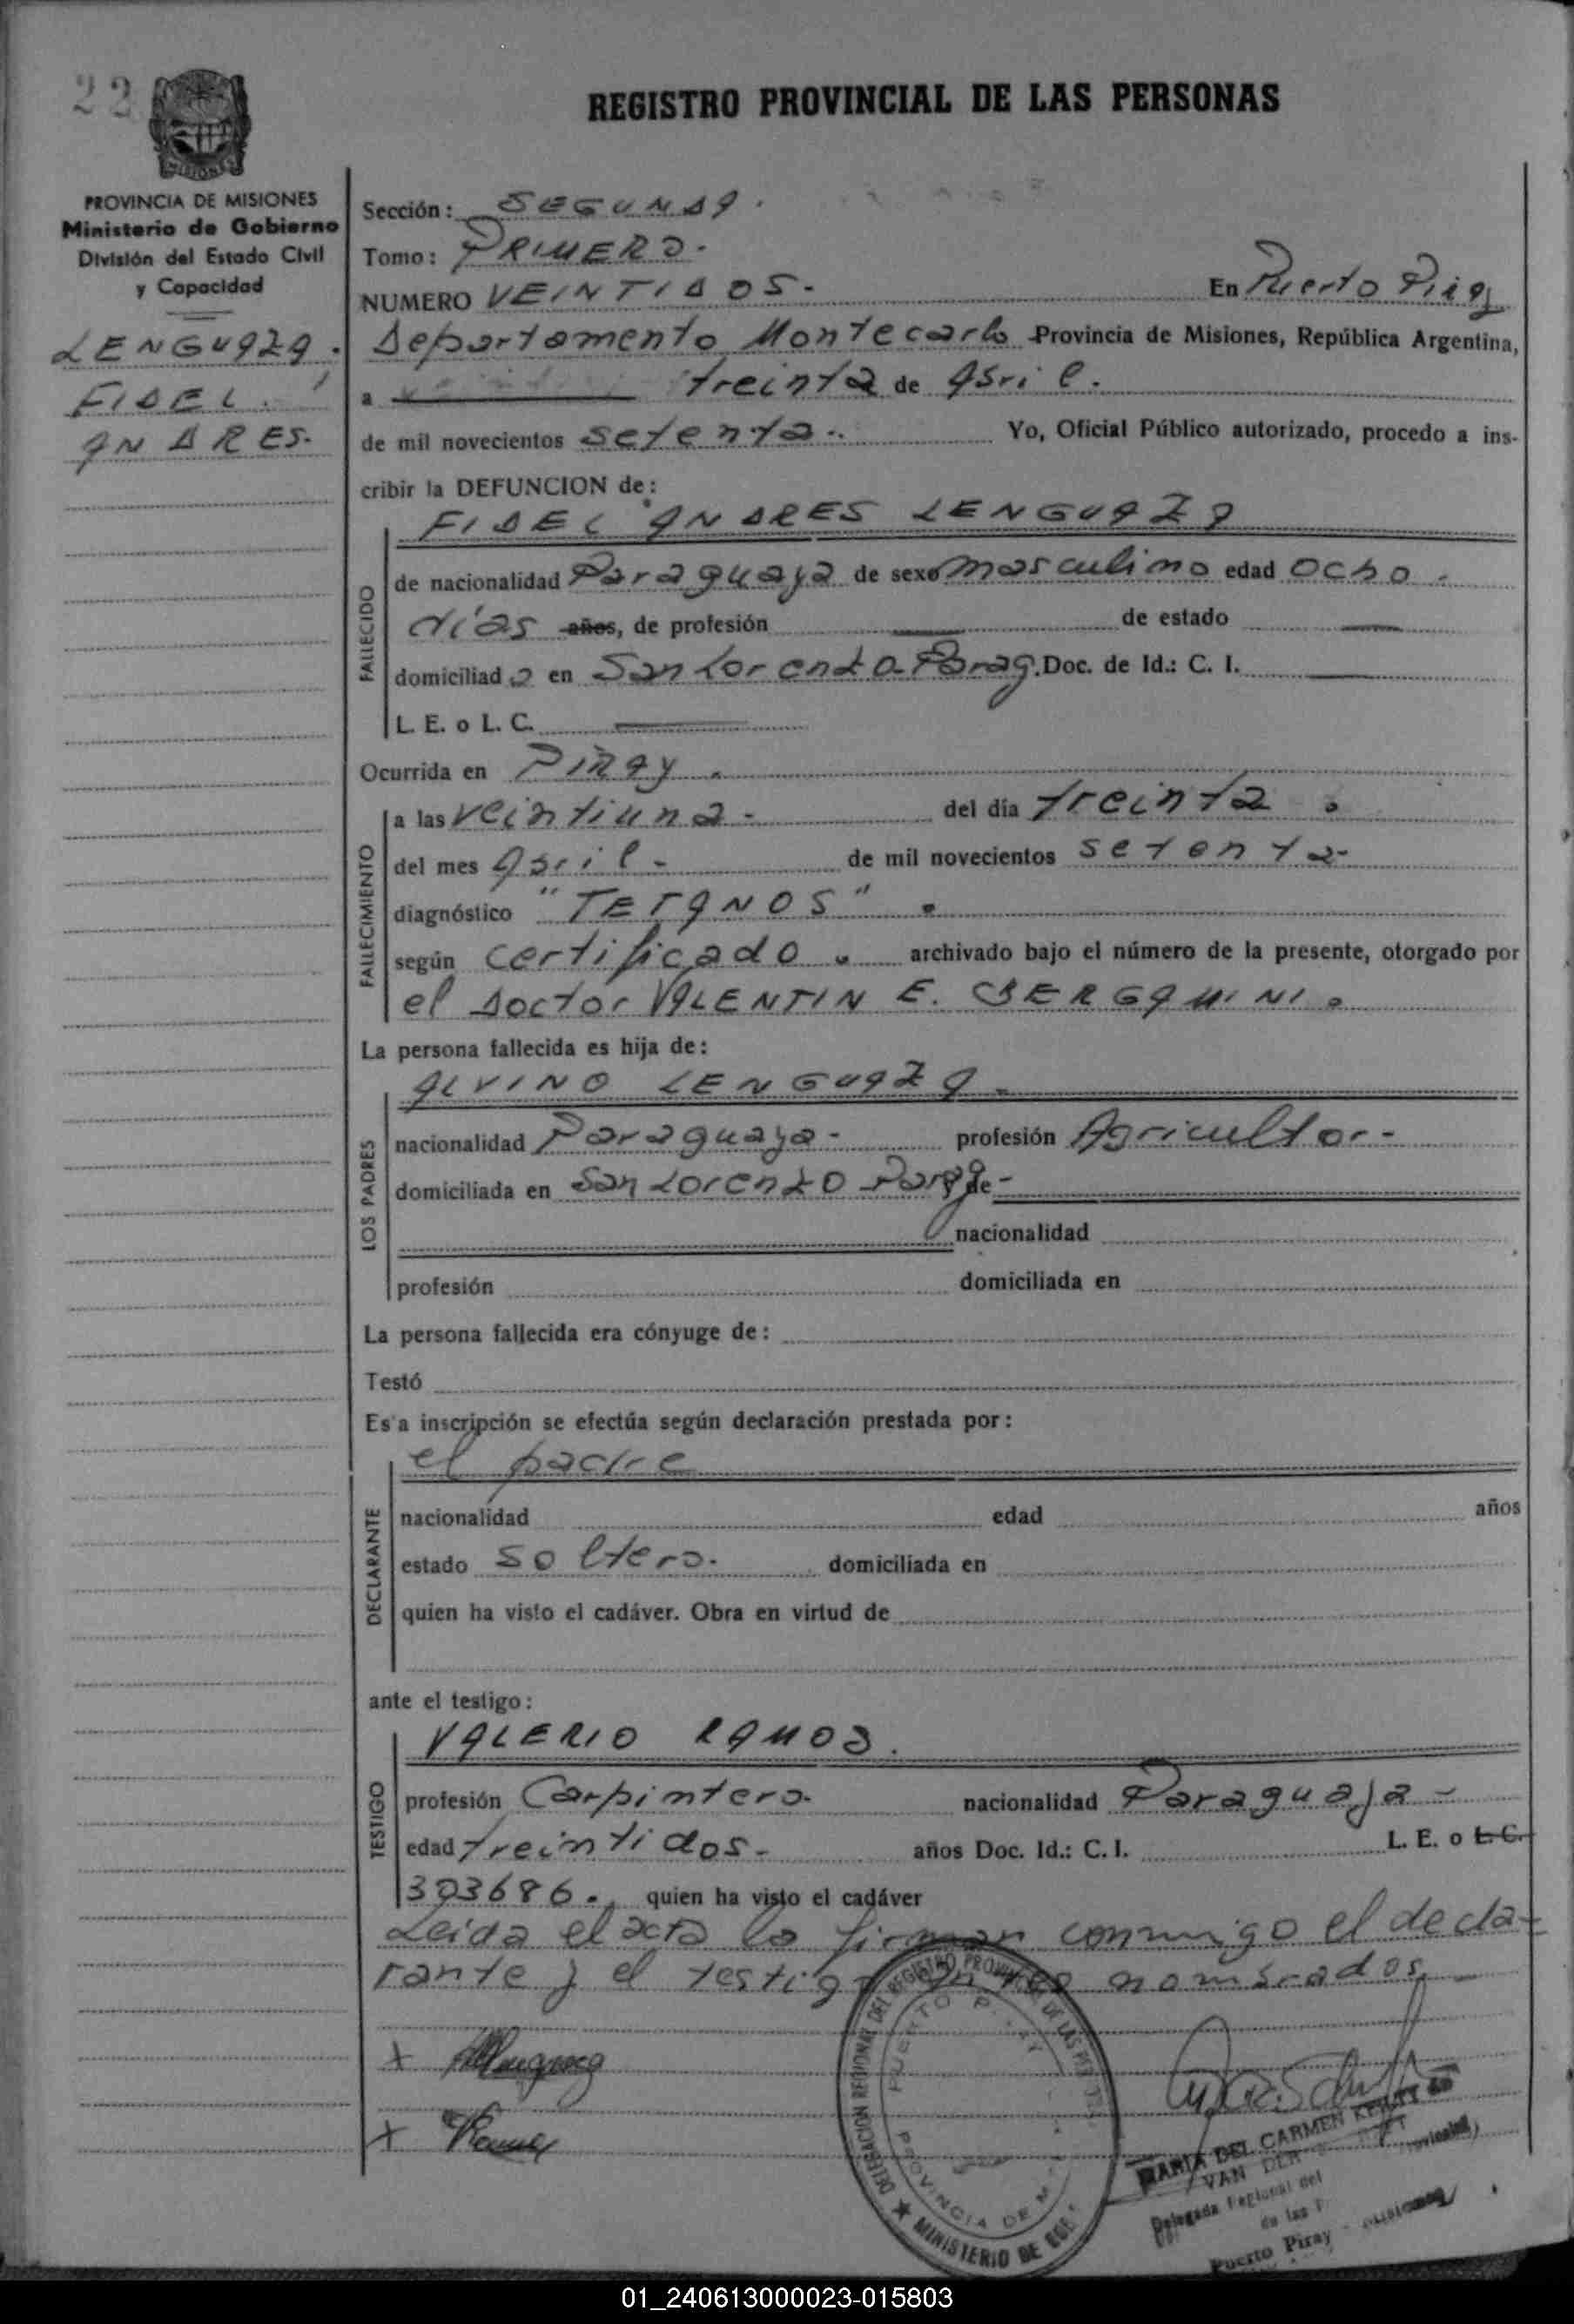 22
REGISTRO PROVINCIAL DE LAS PERSONAS
MISIONES
PROVINCIA DE MISIONES
Ministerio de Gobierno
División del Estado Civil
y Capacidad
LENGUAZA.
FIDEL
ANDRES.
Sección: SEGUNDA.
Tomo: PRIMERO.
NUMERO VEINTIDOS. En Puerto Piray
Departamento Montecarlo Provincia de Misiones, República Argentina,
a treinta de Abril.
de mil novecientos setenta. Yo, Oficial Público autorizado, procedo a ins-
cribir la DEFUNCION de:
FIDEL ANDRES LENGUAZA
FALLECIDO
de nacionalidad Paraguaya de sexo masculino edad ocho.
días años, de profesión — de estado —
domiciliado en San Lorenzo-Parag. Doc. de Id.: C. I. —
L. E. o L. C. —
Ocurrida en PIRAY.
FALLECIMIENTO
a las veintiuna- del día treinta.
del mes Abril- de mil novecientos setenta-
diagnóstico "TETANOS".
según certificado. archivado bajo el número de la presente, otorgado por
el Doctor VALENTIN E. BERGAMINI.
La persona fallecida es hija de:
ALVINO LENGUAZA-
LOS PADRES
nacionalidad Paraguaya- profesión Agricultor-
domiciliada en San Lorenzo Parag- y de
nacionalidad
profesión domiciliada en
La persona fallecida era cónyuge de:
Testó
Es a inscripción se efectúa según declaración prestada por:
el padre
DECLARANTE
nacionalidad edad años
estado soltero. domiciliada en
quien ha visto el cadáver. Obra en virtud de
ante el testigo:
VALERIO RAMOS.
TESTIGO
profesión Carpintero. nacionalidad Paraguaya-
edad treintidos- años Doc. Id.: C. I. L. E. o L. C.
303686. quien ha visto el cadáver
Leida el acta la firman conmigo el decla-
rante y el testigo nombrados.
DELEGACION REGIONAL DEL REGISTRO PROVINCIAL DE LAS PERSONAS
PUERTO PIRAY
PROVINCIA DE
MINISTERIO DE
MARIA DEL CARMEN
VAN DER
Delegada Regional del
de las
Puerto Piray - Misiones
01_240613000023-015803